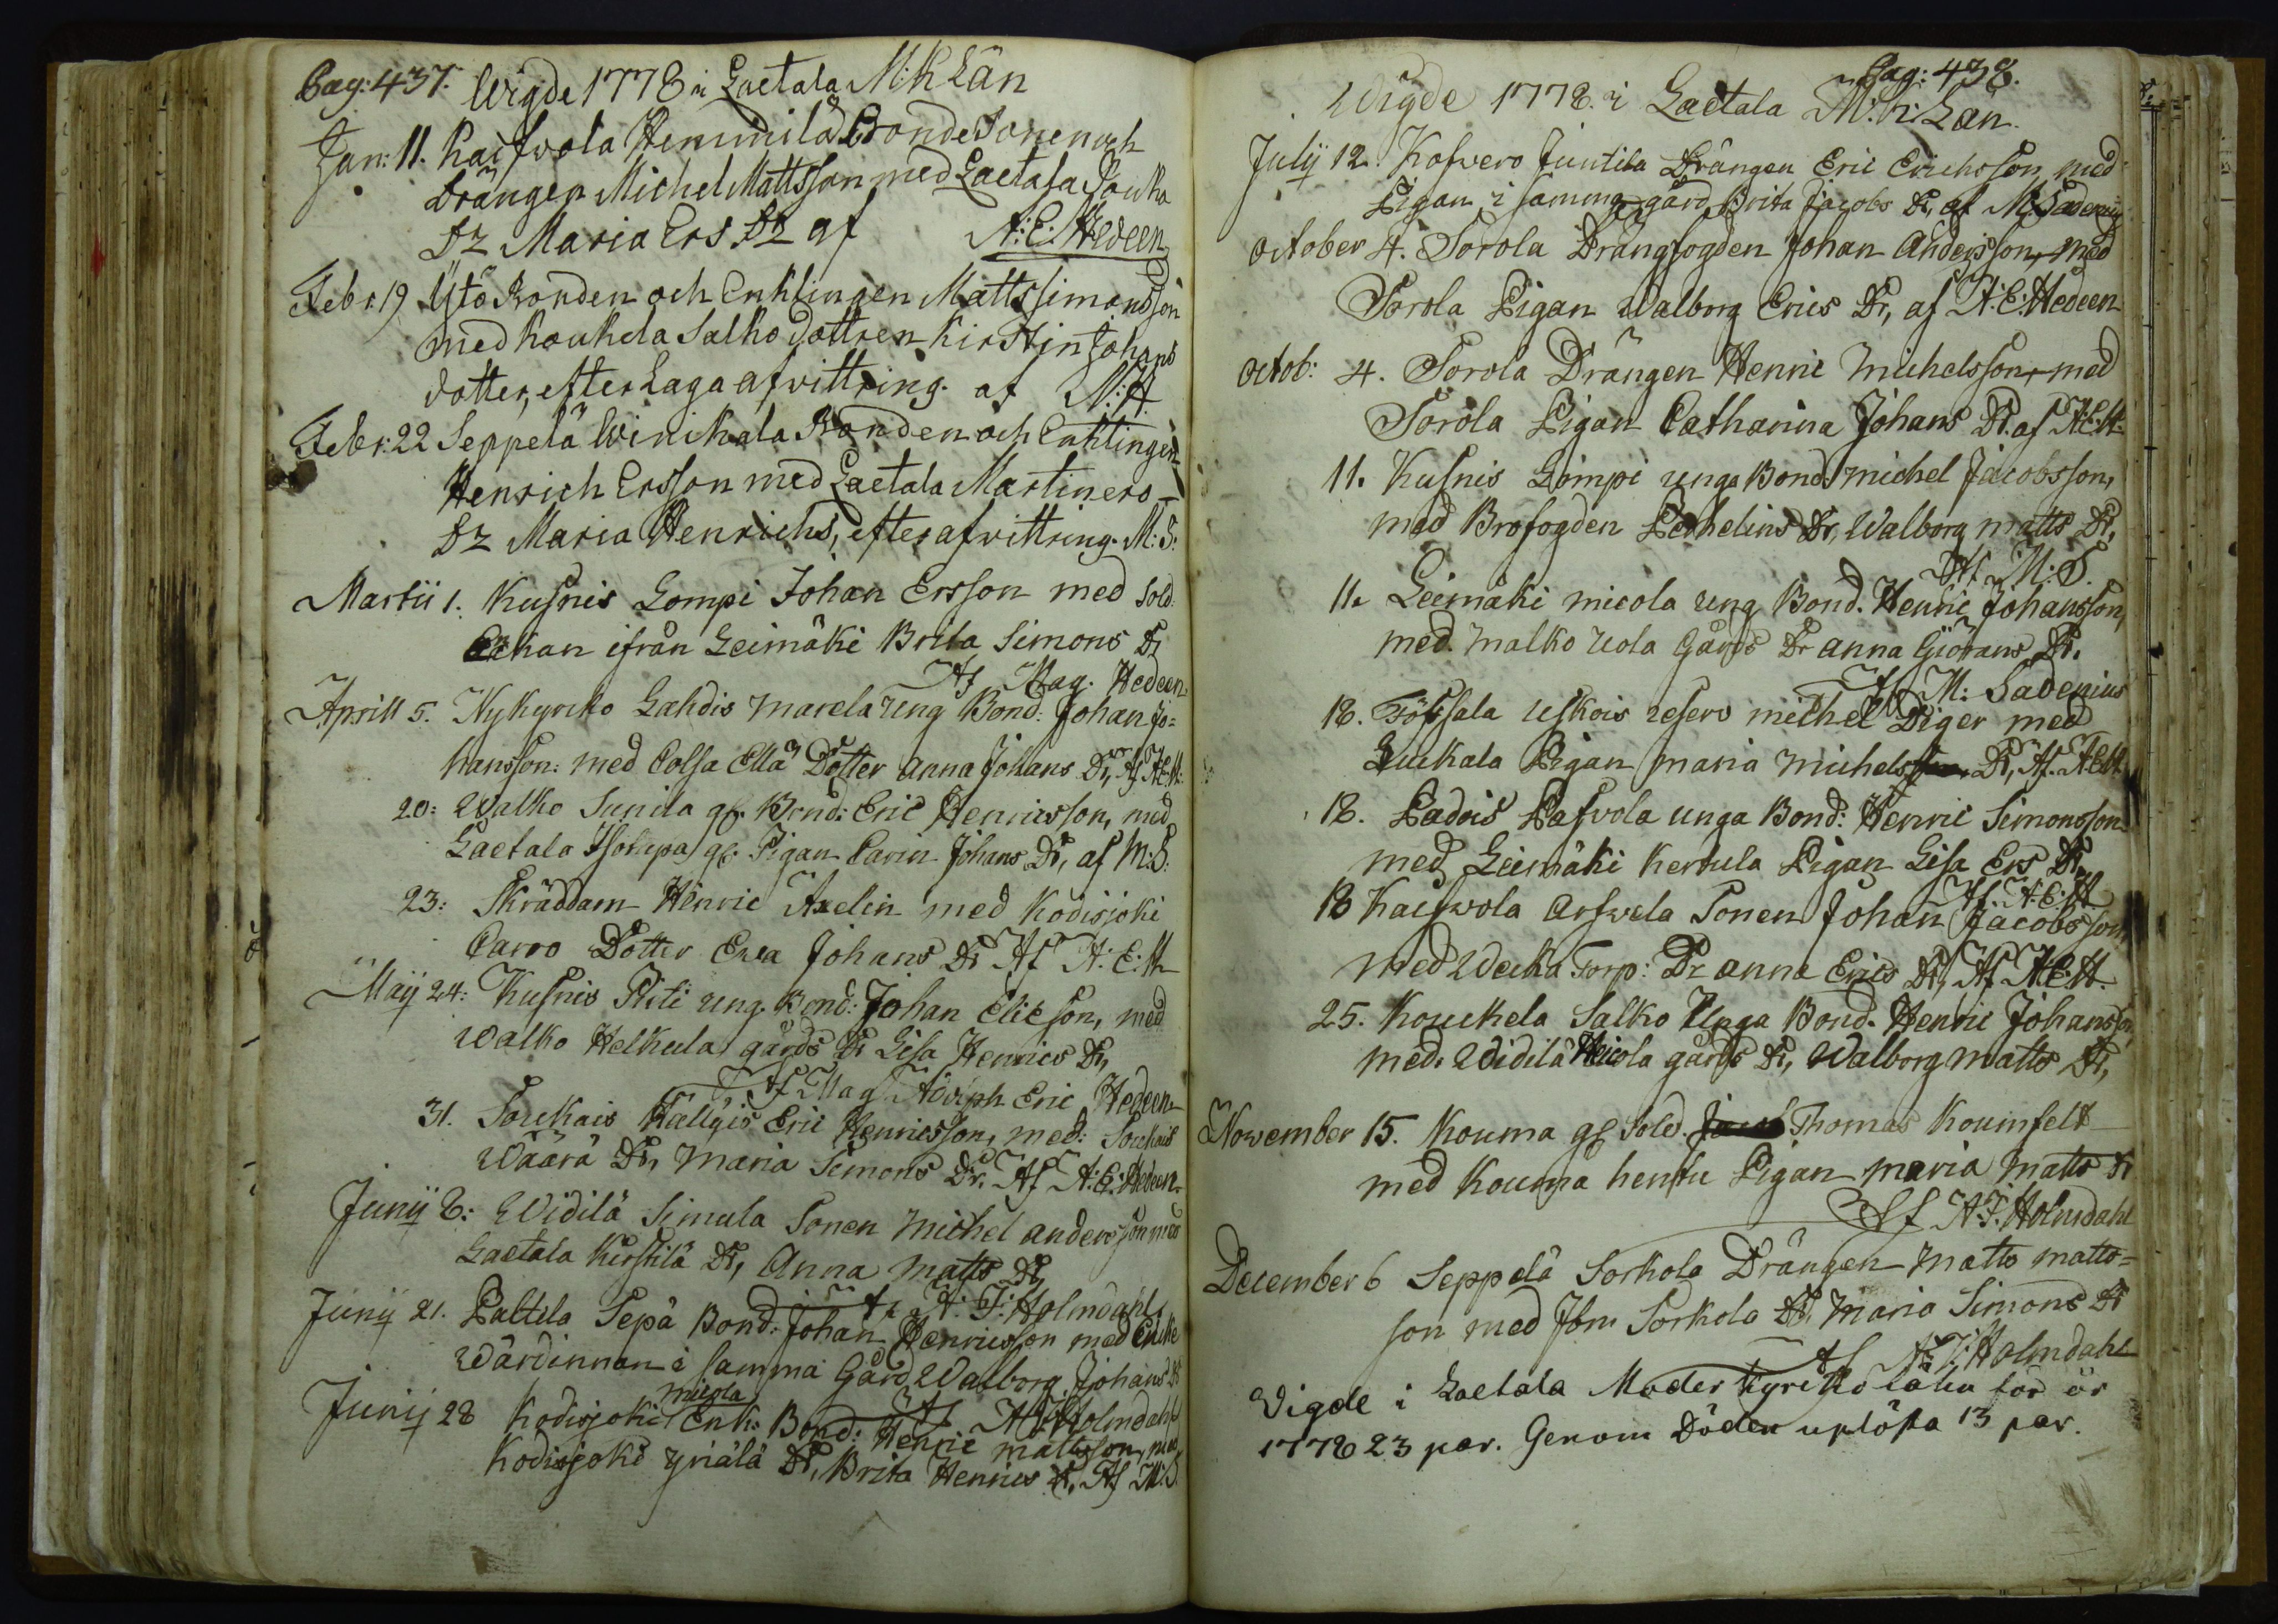 Pag: 437. Wigde 1778 i Laetala M:K Län
Jan: 11. Kaifvola Hemmilä BondeSonen och
Drängen Michel Mattsson med Laetala Jauka
Dr Maria Ers Dr af A:E:Hedeen
Febr: 19 Ytö Bonden och Enklingen Matts Simonsson
med Koukela Salko dottren Kirstin Johans
dotter, efter Laga afvittring. af M:H
Febr: 22 Seppelä Winikala Bonden och Enklingen
Henrich Ersson med Laetala Martiners
Dr Maria Henrichs, efter afvittring. M:S:
Martii 1. Kusnis Lompi Johan Ersson med Sold.
Enkan ifrån Leimäki Brita Simons Dr
Af Mag. Hedeen
Aprill 5. Nykyrcko Lahdis Marela ung Bond: Johan Jo=
hansson: med Colsa Ella Dotter Anna Johans Dr, Af A.E.H:
20: Walko Sunila gf. Bond: Eric Henricsson, med
Laetala Isotupa gf. Pigan Carin Johans Dr, af M:S:
23: Skräddarn Henric Axelin med Kodisjoki
Carro Dotter Ewa Johans Dr Af A:E:H
Maij 24: Kusnis Piiti ung. Bond: Johan Elieson, med
Walko Helkula gårds Dr Lisa Henrics Dr,
Af Mag Adolph Eric Hedeen
31. Soukais Kællgis Eric Henricsson, med: Soukais
Wäärä Dr, Maria Simons Dr. Af A:E:Hedeen
Junij 8: Widilä Simula Sonen Michel Andersson med
Laetala Kirstilä Dr, Anna Matts Dr,
Af A:F:Holmdahl
Junij 21. Paltila Sepä Bond: Johan Henricsson med Encke
Wärdinnan i samma Gård Walborg Johans Dr
Af A:F:Holmdahl
micola
Junij 28 Kodisjoki Enk: Bond: Henric Mattsson, med
Kodisjoki yriälä Dr, Brita Henrics Dr, Af M:S.
Pag: 438.
Wigde 1778. i Laetala M:K:Län.
Julij 12. Kofvero Juntila Drängen Eric Erichsson, med
Pigan i samma gård Brita Jacobs Dr, af M:Sadenius
October 4. Sorola Drängfogden Johan Andersson, med
Sorola Pigan Walborg Erics Dr, af A:E:Hedeen
Octob: 4. Sorola Drängen Henric Michelsson, med
Sorola Pigan Catharina Johans Dr. af A:E:H:
11. Kusnis Lompi unga Bond. Michel Jacobsson,
med Brofogden Pethelins Dr, Walborg Matts Dr,
Af M:S.
11. Leimäki micola ung Bond. Henric Johansson,
med. Malko uola Gårds Dr Anna Giörans Dr.
Af M: Sadenius
18. Töfsala uskois reserv michel Diger med
Luckala Pigan Maria Michels Dr, Af. A:E:H
18. Padois Pafvola unga Bond: Henric Simonsson
med Leimäki Kertula Pigan Lisa Ers Dr,
Af. A:E:H
18 Kaifwola Arfwela Sonen Johan Jacobsson,
med Weika Torp: Dr Anna Erics Dr, Af A:E:H.
25. Koukela Salko Unga Bond. Henric Johansson,
med. Widilä Heicola gårds Dr, Walborg Matts Dr,
November 15. Kouma gf Sold. Thomas Koumfelt
med Kouma hentu Pigan Maria Matts Dr
Af A:F:Holmdahl
December 6 Seppelä Sorkola Drängen Matts Matts=
son med Ibm Sorkola Dr, Maria Simons Dr
Af A:F:Holmdahl
Vigde i Laetala Moder kyrcko län för år
1778 23 par. Genom Döden uplösta 13 par.